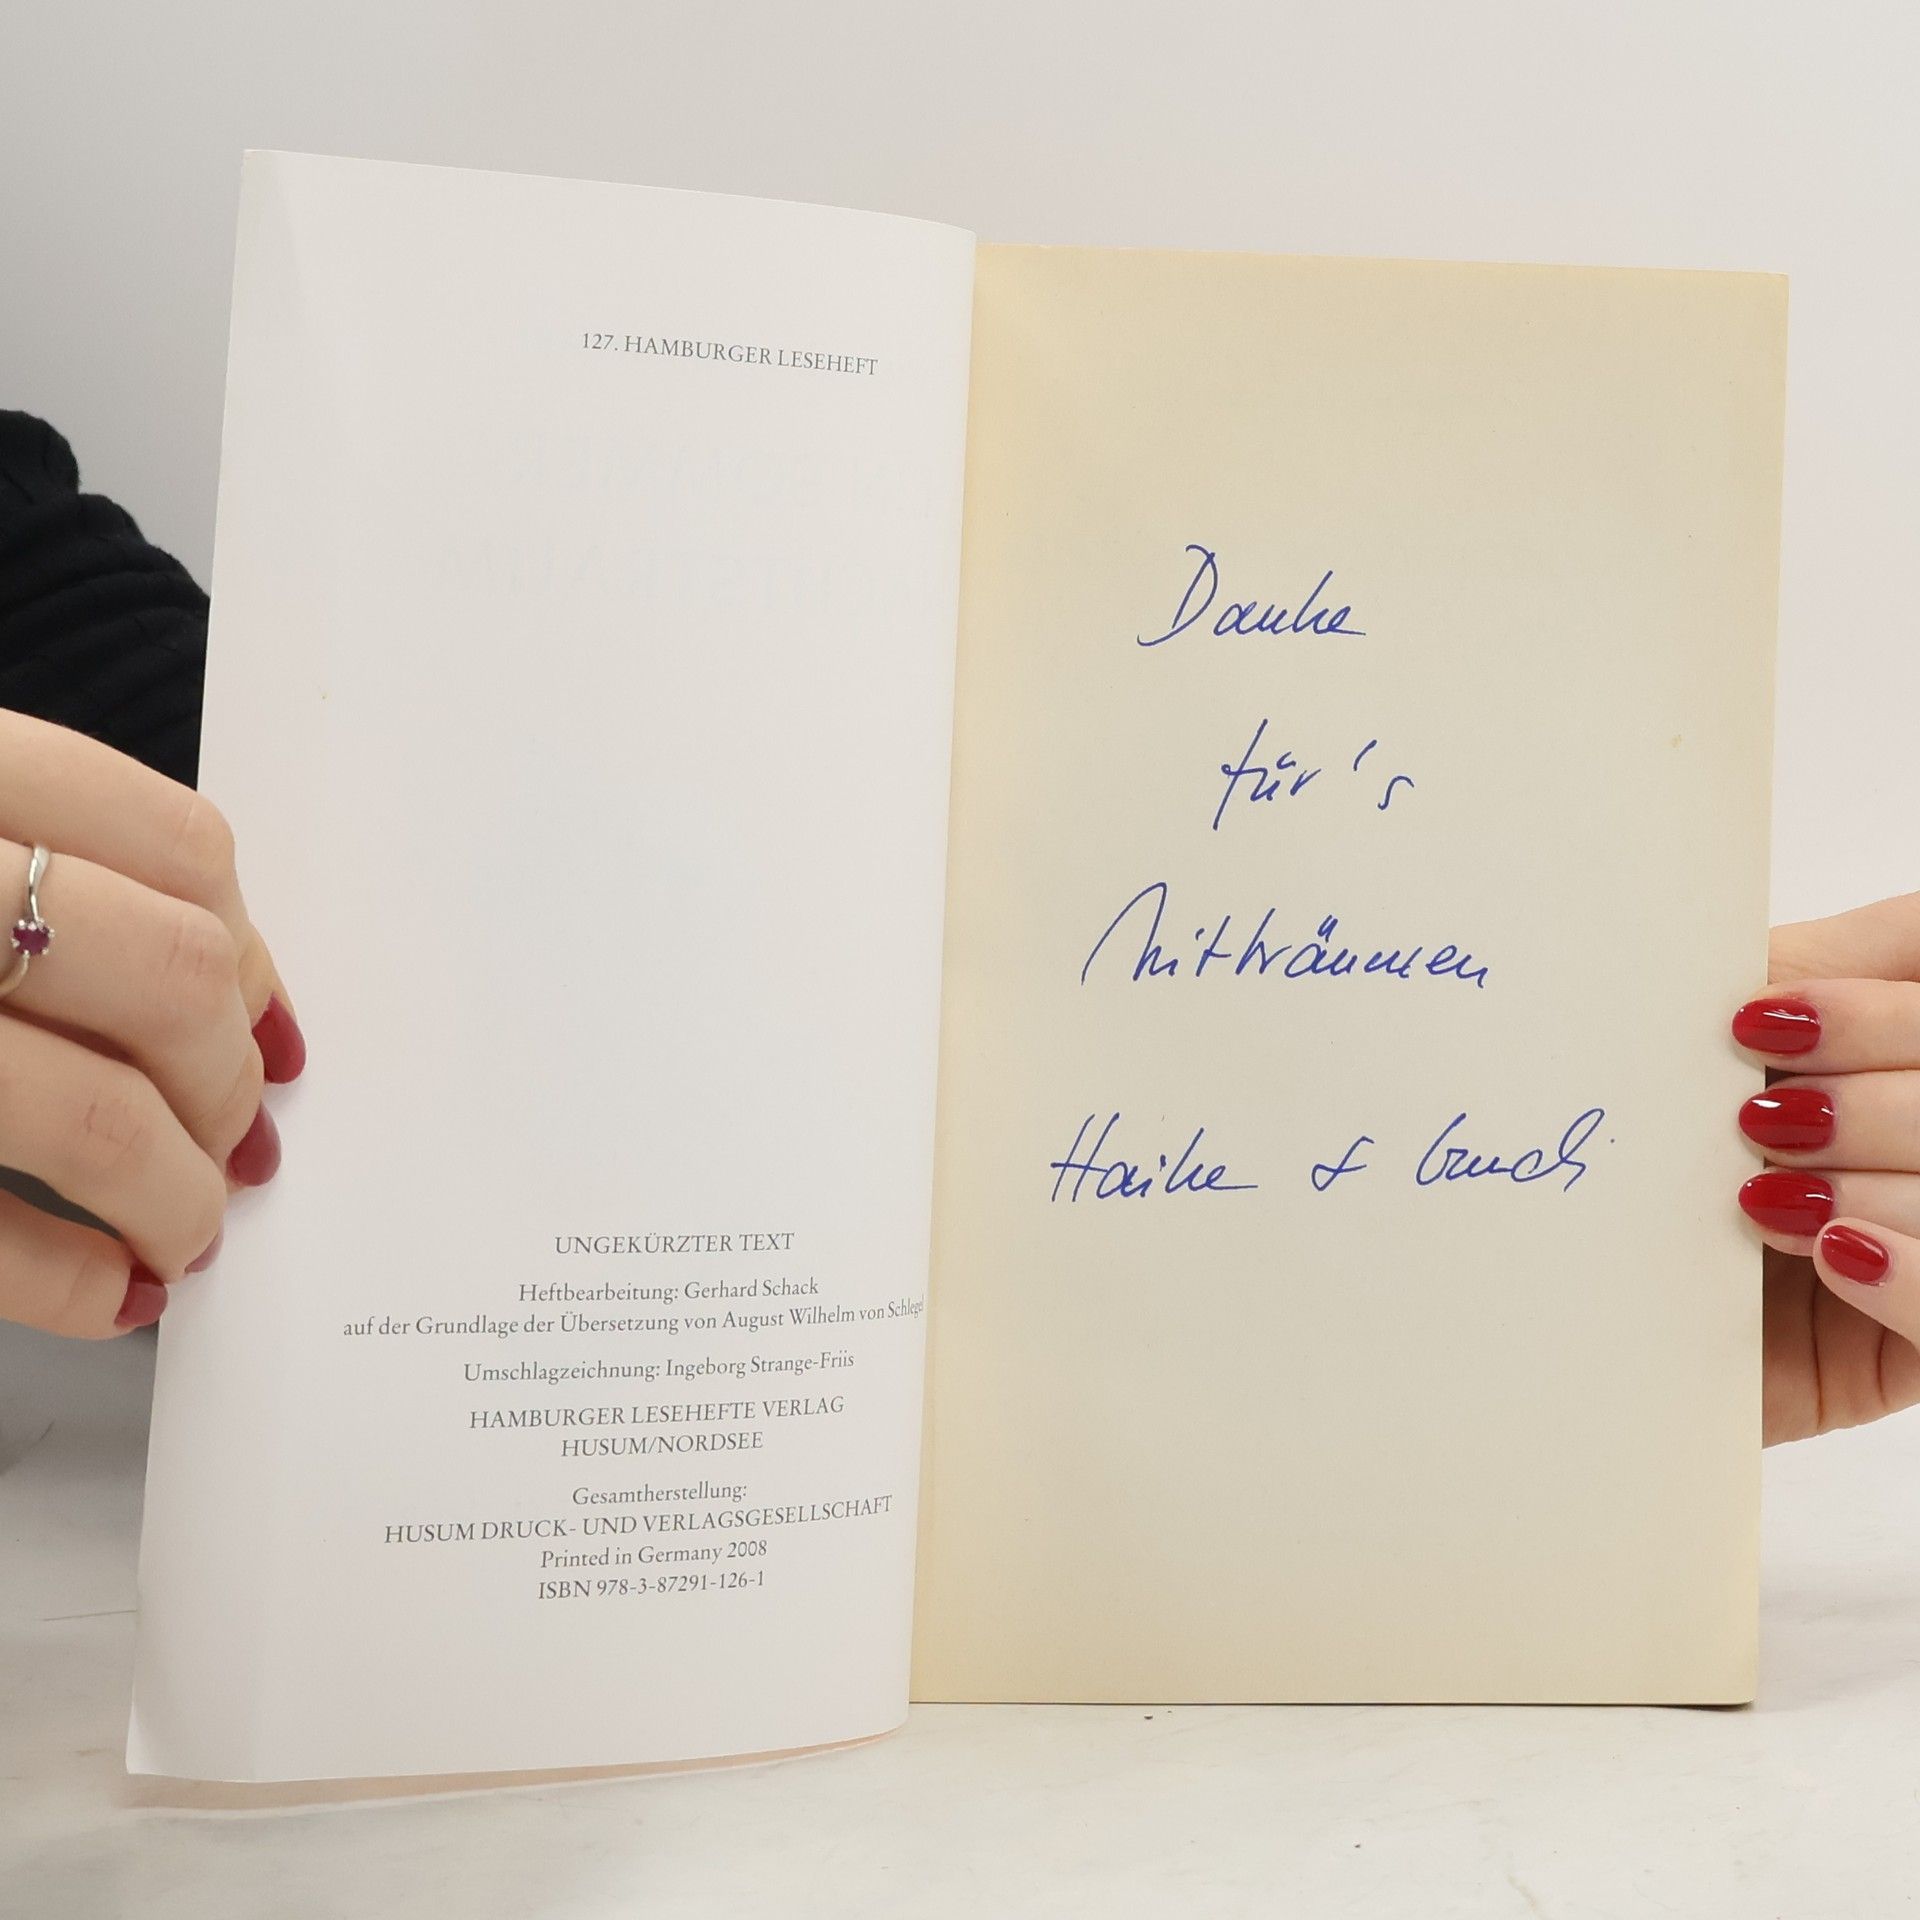 127. HAMBURGER LESEHEFT
UNGEKÜRZTER TEXT
Heftbearbeitung: Gerhard Schack
auf der Grundlage der Übersetzung von August Wilhelm von Schlegel
Umschlagzeichnung: Ingeborg Strange-Friis
HAMBURGER LESEHEFTE VERLAG
HUSUM/NORDSEE
Gesamtherstellung:
HUSUM DRUCK- UND VERLAGSGESELLSCHAFT
Printed in Germany 2008
ISBN 978-3-87291-126-1
Danke
für's
Mitträumen
Haike &